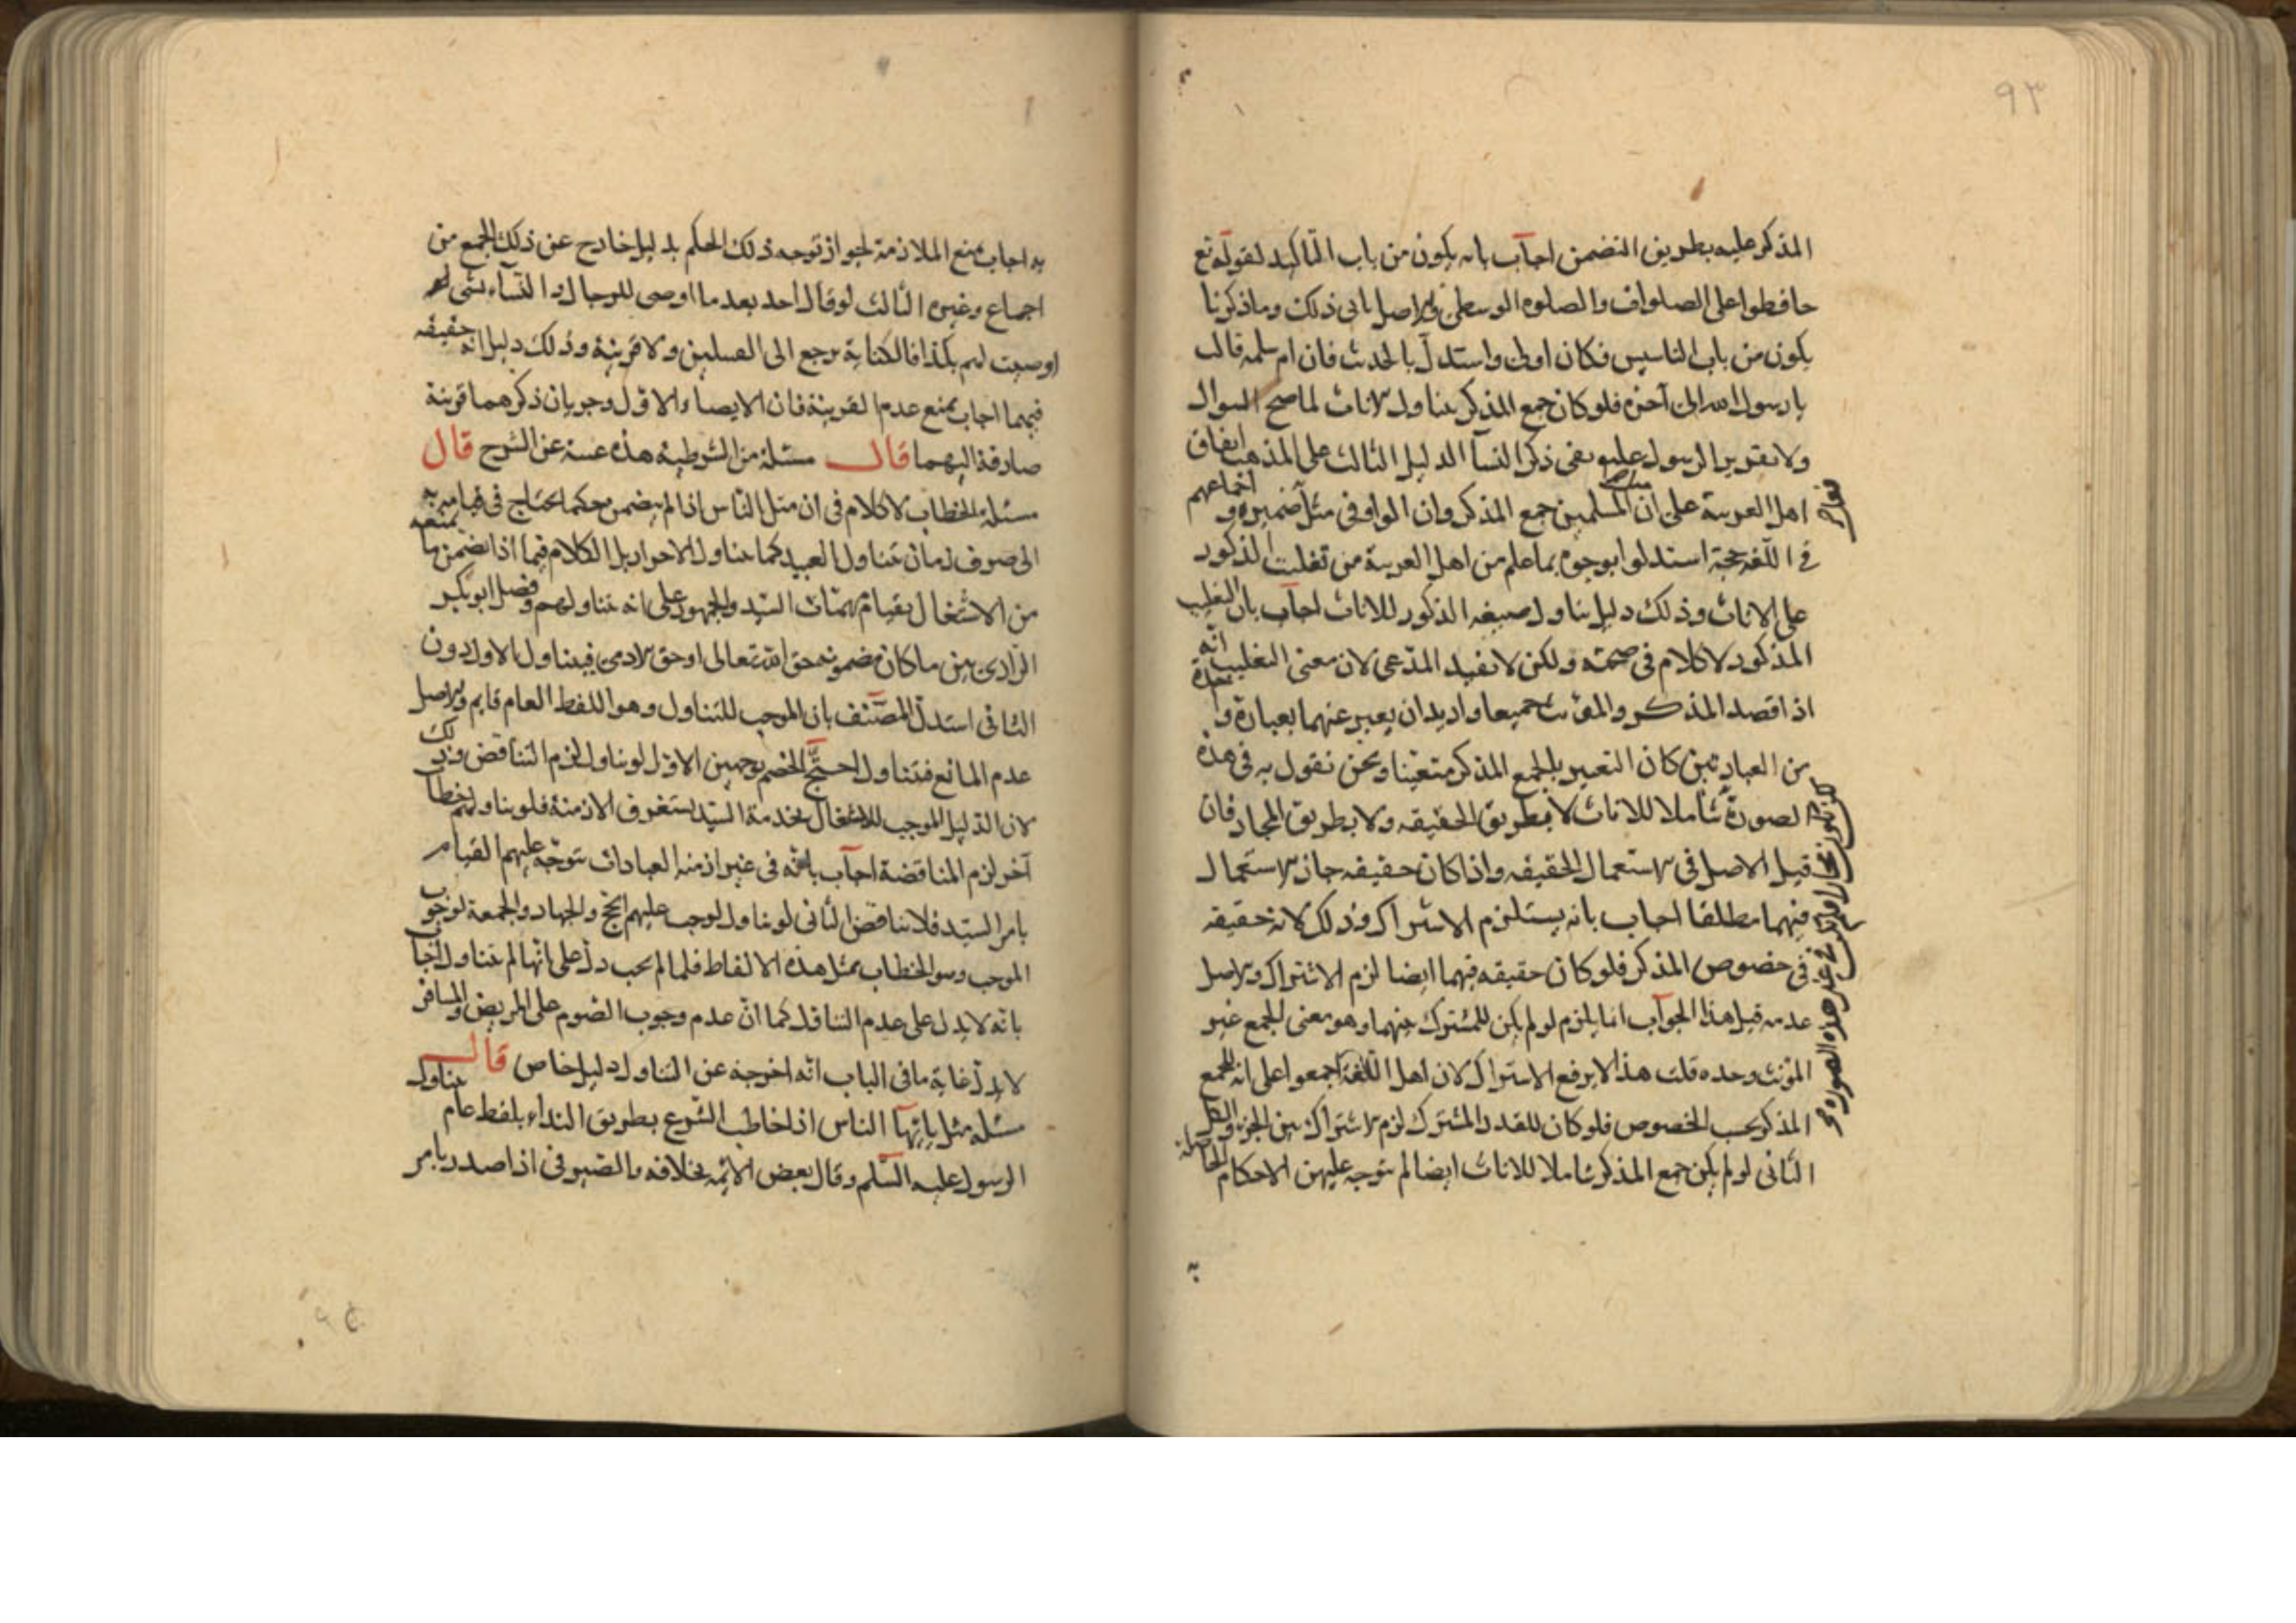 ٩٣
المذكر عليه بطريق التضمن اجاب بانه يكون من باب التاكيد لقوله تع
حافظوا على الصلوات والصلوة الوسطى والاصل يابى ذلك وما ذكرنا
يكون من باب التاسيس فكان اولى واستدل بالحديث فان ام سلمه قالت
يا رسول الله الى آخره فلو كان جمع المذكر يتناول الاناث لما صح السوال
ولا تقرير الرسول عليه نفى ذكر النسا الدليل الثالث على المذهب اتفاق
اهل العربية على ان المسلمين جمع المذكر وان الواو فى مثل ضميره و اجماعهم
فى اللغه حجة استدلوا بوجوه بما علم من اهل العربية من تغليب الذكور
على الاناث وذلك دليل يناول صيغه الذكور للاناث اجاب بان التغليب
المذكور لا كلام فى صحته ولكن لا تفيد المدعى لان معنى التغليب انه
اذا قصد المذكر والمؤنث جميعا واريد ان يعبر عنهما بعبارة واحدة
من العبارتين كان التعبير بالجمع المذكر متعينا ونحن نقول به فى هذه
الصورة شاملا للاناث لا بطريق الحقيقه ولا بطريق المجاز فان
قيل الاصل فى الاستعمال الحقيقه واذا كان حقيقه جاز الاستعمال
فيهما مطلقا اجاب بانه يستلزم الاشتراك وذلك لانه حقيقه
فى خصوص المذكر فلو كان حقيقه فيهما ايضا لزم الاشتراك والاصل
عدمه قيل هذا الجواب انما يلزم لو لم يكن للمشترك بينهما وهو معنى الجمع غير
المؤنث وحده قلت هذا لا يرفع الاشتراك لان اهل اللغة اجمعوا على انه للجمع
المذكر بحسب الخصوص فلو كان للقدر المشترك لزم الاشتراك بين الجزء والكل
الثانى لو لم يكن جمع المذكر شاملا للاناث ايضا لم تتوجه عليهن الاحكام
غير هذه الصورة
به
به اجاب بمنع الملازمة لجواز توجه ذلك الحكم بدليل خارج عن ذلك الجمع من
اجماع وغيره الثالث لو قال احد بعد ما اوصى للرجال والنسآء بشى
اوصيت لهم بكذا فالكناية يرجع الى القبيلين ولا قرينة وذلك دليل انه حقيقه
فيهما اجاب بمنع عدم القرينة فان الايصاء الاول وجريان ذكرهما قرينة
صارفة اليهما قال مسئلة من الشرطية هذه غنية عن الشرح قال
مسئلة الخطاب لا كلام فى ان مثل الناس اذا لم يتضمن حكما يحتاج فى قيامه به
الى صرف زمان يتناول العبيد كما يتناول الاحرار بل الكلام فيما اذا تضمن
من الاشتغال بقيام مهمات السيد والجمهور على انه يتناولهم وفصل ابو بكر
الرازى بين ما كان مضمونه حق الله تعالى او حق الادمى فيتناول الاول دون
الثانى استدل المصنف بان الموجب للتناول وهو اللفظ العام قايم والاصل
عدم المانع فتناول احتج الخصم بوجهين الاول لو يناول لزم التناقض وذلك
لان الدليل الموجب للاشتغال بخدمة السيد يستغرق الازمنة فلو يناولهم خطاب
آخر لزم المناقضة اجاب بانه فى غير ازمنه العبادات تتوجه عليهم القيام
بامر السيد فلا يناقض الثانى لو يناول لوجب عليهم الحج والجهاد والجمعة لوجوب
الموجب وهو الخطاب بمثل هذه الالفاظ فلما لم يجب دل على انها لم يتناول اجاب
بانه لا يدل على عدم التناول كما ان عدم وجوب الصوم على المريض والمسافر
لا يدل غاية ما فى الباب انه اخرجه عن التناول دليل خاص قال
مسئله مثل يا ايها الناس اذا خاطب الشرع بطريق النداء بلفظ عام يتناول
الرسول عليه السلم وقال بعض الائمه بخلافه والصيرفى اذا صدر بامر